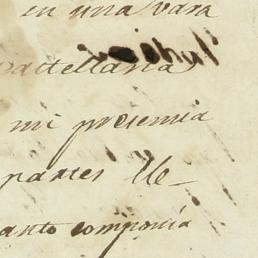 en una vara
Castellana
mi presencia
partes lle-
anto componía